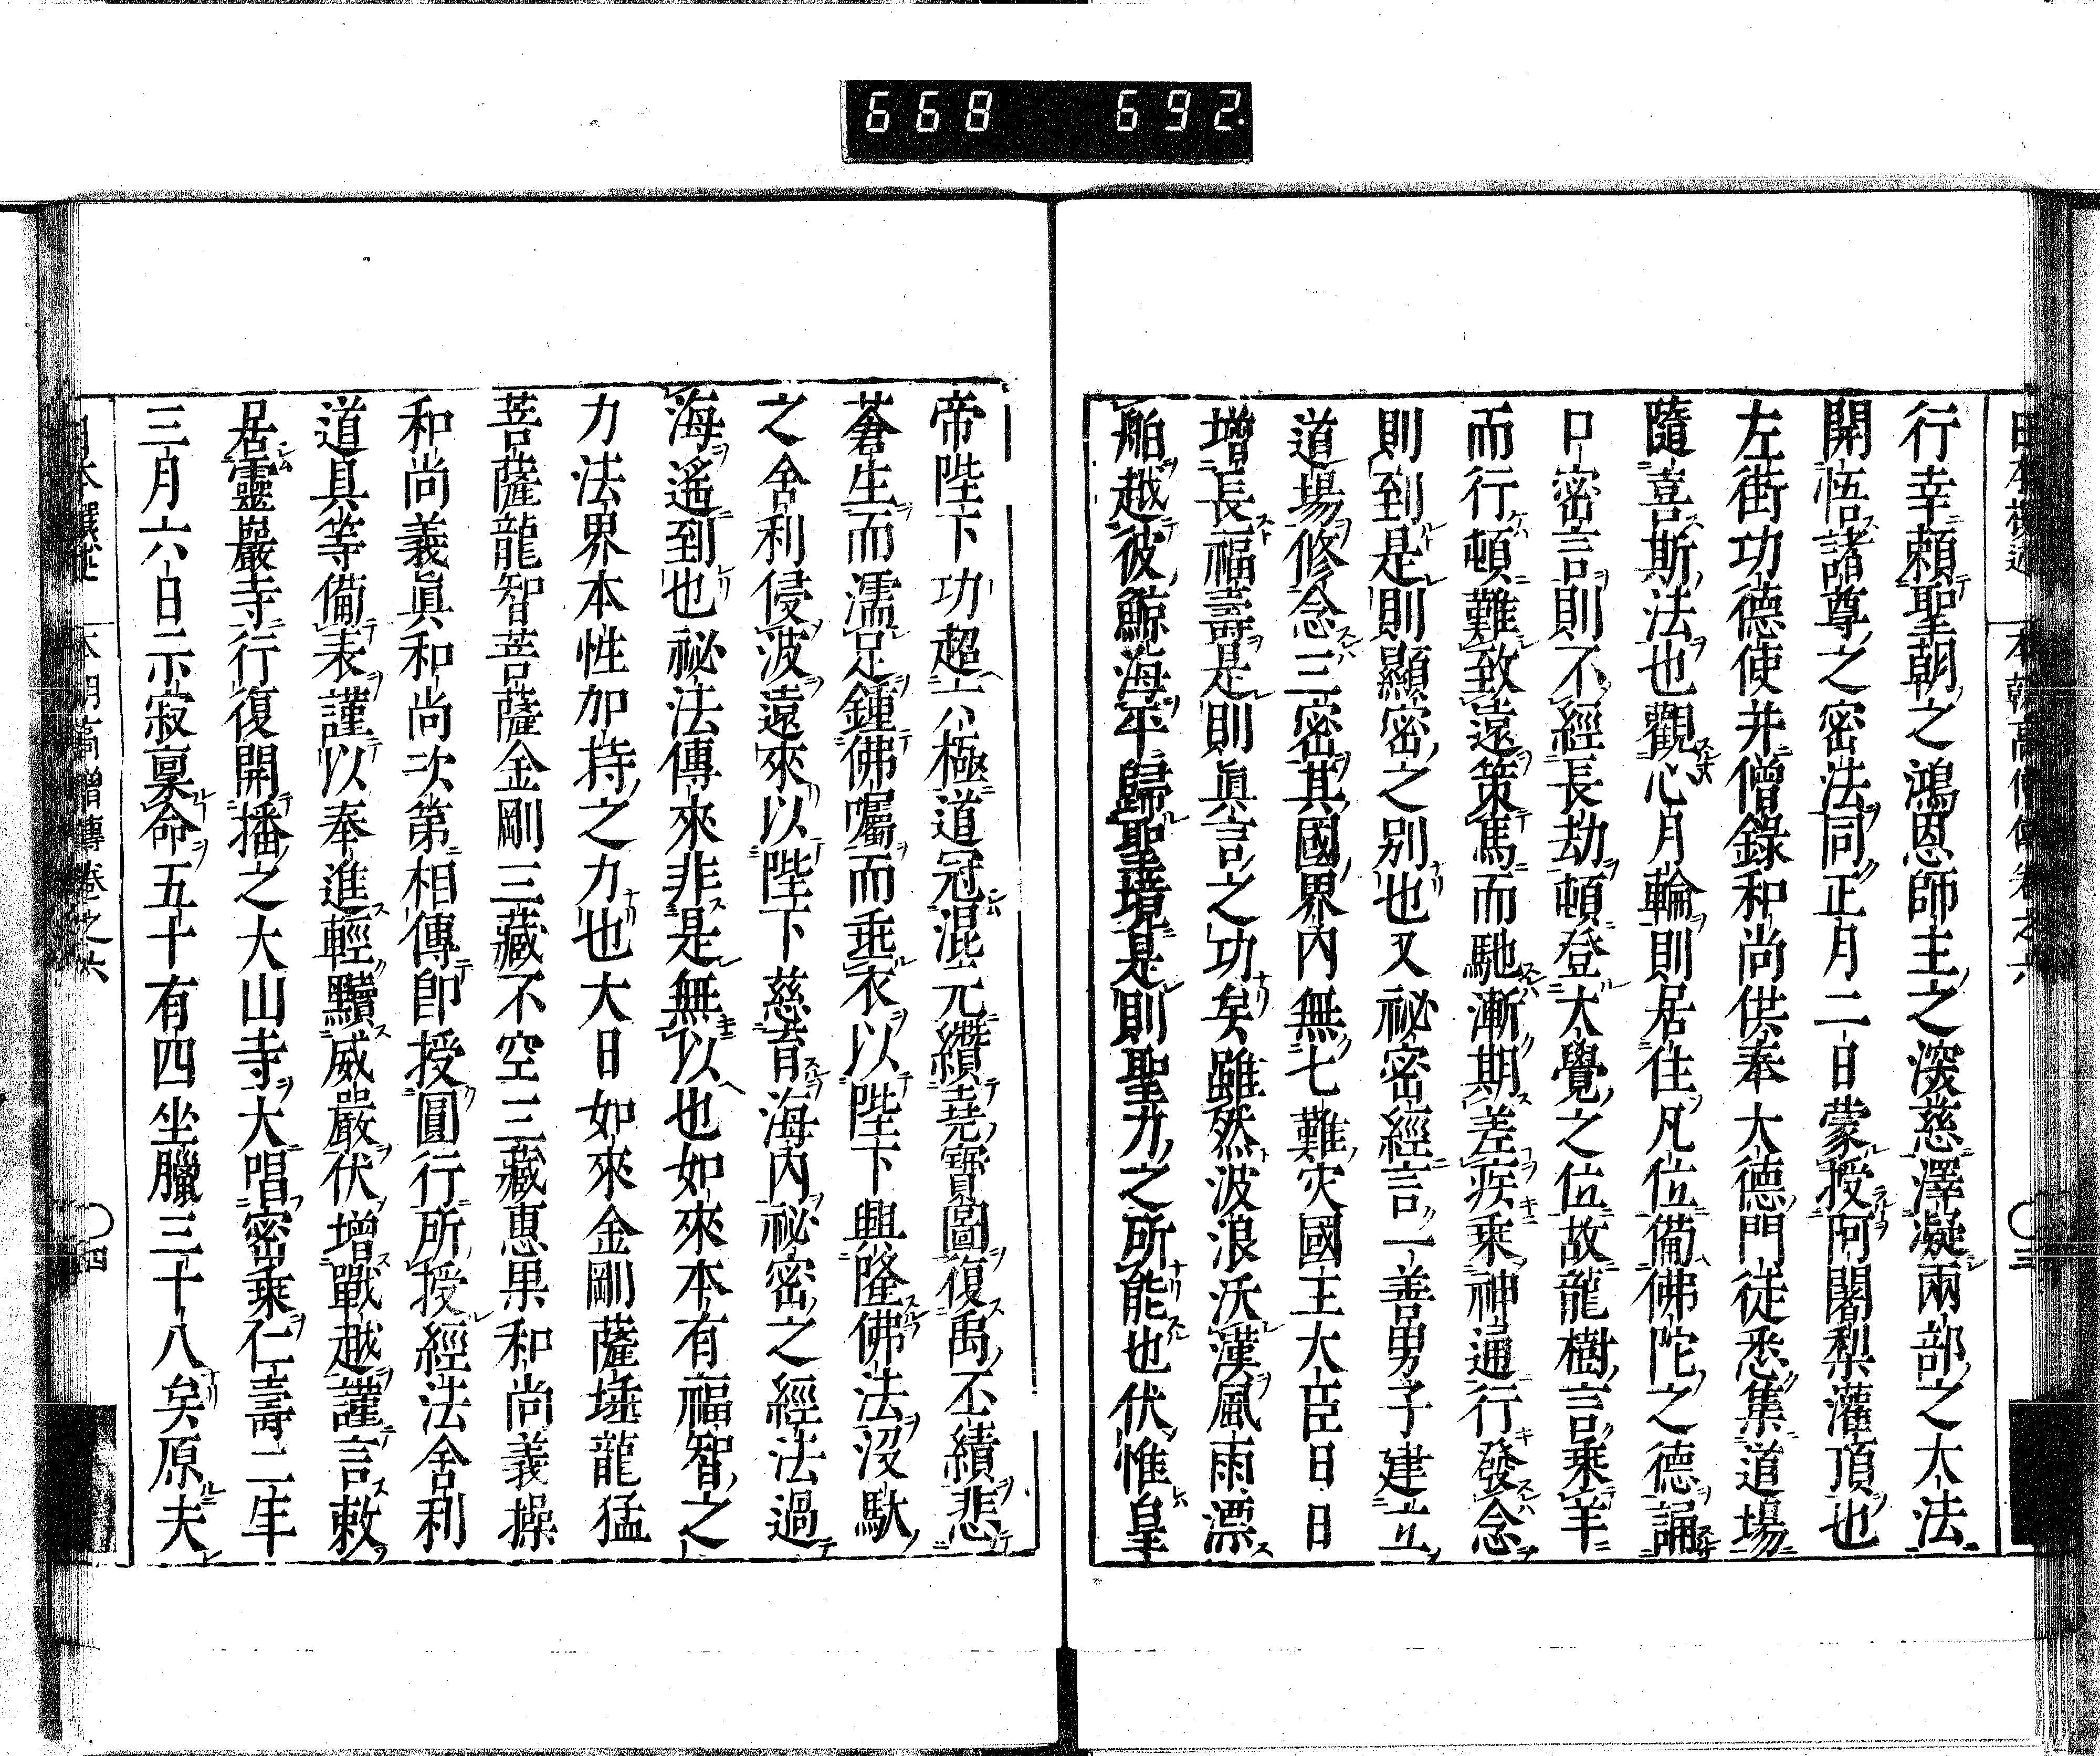 668 692
行幸賴聖朝之鴻恩師主之深慈澤凝兩部之大法
開悟諸尊之密法同正月二日蒙授阿闍梨灌頂也
左街功德使并僧錄和尚供奉大德門徒悉集道場
隨喜斯法也觀心月輪則居住凡位備佛陀之德誦
口密言則不經長劫頓登大覺之位故龍樹言乘羊
而行頓難致遠策馬而馳漸期差疾乘神通行發念
則到是則顯密之别也又祕密經言一善男子建立
道場修念三密其國界內無七難灾國王大臣日日
增長福壽是則眞言之功矣雖然波浪沃漢風雨漂
舶越彼鯨海平歸聖境是則聖力之所能也伏惟皇
帝陛下功超六極道冠混元纘堯寶圖復禹丕績悲
蒼生而濡足鍾佛囑而垂衣以陛下興隆佛法沒馱
之舍利侵波遠來以陛下慈育海內祕密之經法過
海遙到也祕法傳來非是無以也如來本有福智之
力法界本性加持之力也大日如來金剛薩埵龍猛
菩薩龍智菩薩金剛三藏不空三藏惠果和尚義操
和尚義眞和尚次第相傳卽授圓行所授經法舍利
道具等備表謹以奉進輕黷威嚴伏增戰越謹言敕
居靈巖寺行復開播之大山寺大唱密乘仁壽二年
三月六日示寂稟命五十有四坐臘三十八矣原夫
本朝高僧傳卷之六 四